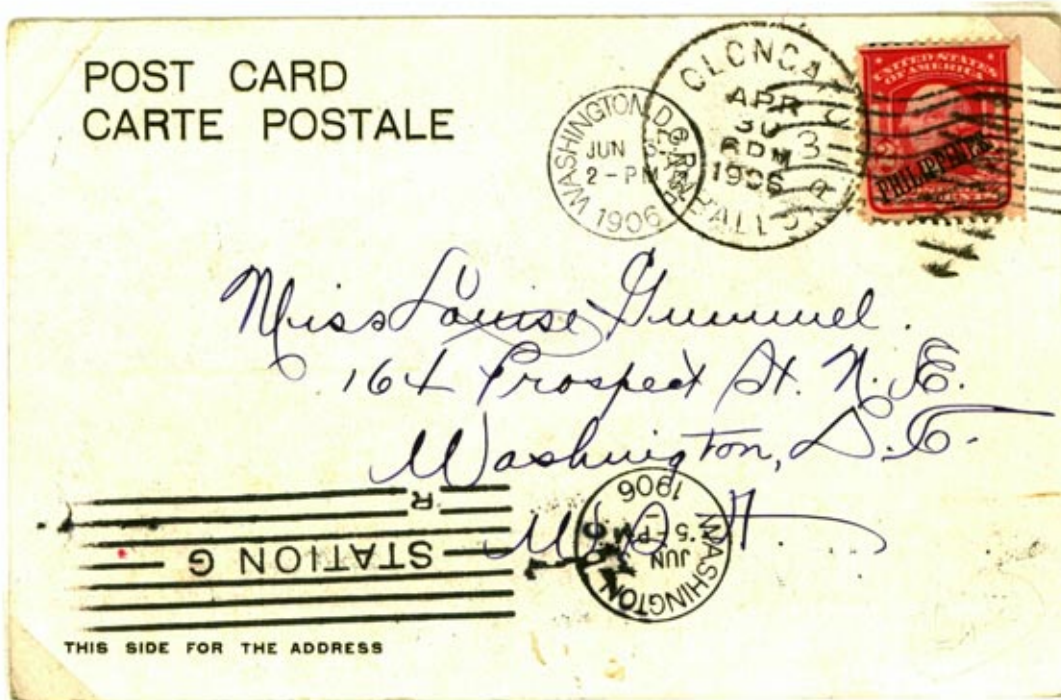 POST CARD
CARTE POSTALE
WASHINGTON, D.C.
JUN 3
2-PM
1906
APR
30
6PM
1906
3
UNITED STATES
OF AMERICA
PHILIPPINES
Miss Louise Gummel.
164 Prospect St. N. E.
Washington, D.C.
R
STATION G
WASHINGTON
JUN
5-PM
1906
THIS SIDE FOR THE ADDRESS